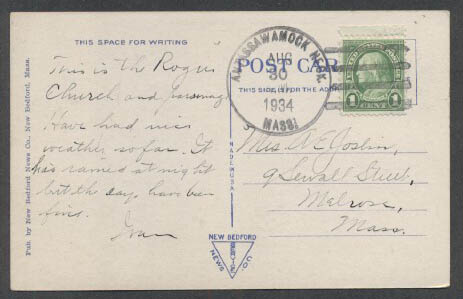 THIS SPACE FOR WRITING
This is the Rogers
Church and parsonage
Have had nice
weather so far. It
has rained at night
but the days have been
fine.
Pub. by New Bedford News Co., New Bedford, Mass.
MADE IN U.S.A.
POST CARD
THIS SIDE IS FOR THE ADDRESS
ANTASSAWAMOCK NECK
AUG
30
1934
MASS.
1 CENT 1
Mrs. A E Joslin,
9 Sewall Street,
Melrose,
Mass.
NEW BEDFORD
NEWS
SERVICE
CO.